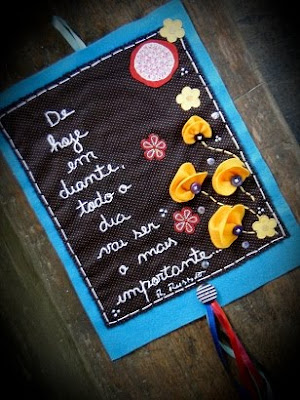 De
hoje
em
diante,
todo o
dia
vai ser
o mais
importante...
R. Russo